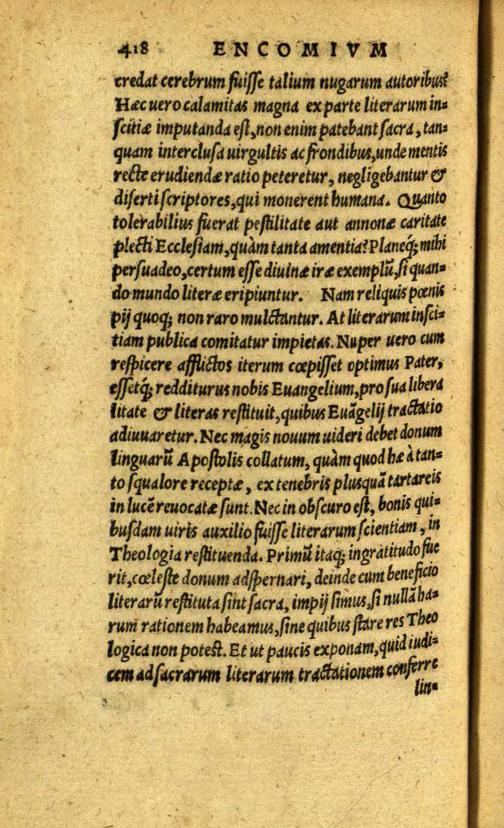 418 ENCOMIVM
credat cerebrum fuisse talium nugarum autoribus?
Hæc uero calamitas magna ex parte literarum in=
scitiæ imputanda est, non enim patebant sacra, tan=
quam interclusa uirgultis ac frondibus, unde mentis
recte erudiendæ ratio peteretur, negligebantur &
diserti scriptores, qui monerent humana. Quanto
tolerabilius fuerat pestilitate aut annonæ caritate
plecti Ecclesiam, quàm tanta amentia? Planeq́; mihi
persuadeo, certum esse diuinæ iræ exemplũ, si quan=
do mundo literæ eripiuntur. Nam reliquis pœnis
pij quoq; non raro mulctantur. At literarum insci=
tiam publica comitatur impietas. Nuper uero cum
respicere afflictos iterum cœpisset optimus Pater,
essetq́; redditurus nobis Euangelium, pro sua libera
litate & literas restituit, quibus Euãgelij tractatio
adiuuaretur. Nec magis nouum uideri debet donum
linguarũ Apostolis collatum, quàm quod hæ à tan=
to squalore receptæ, ex tenebris plusquã tartareis
in lucẽ reuocatæ sunt. Nec in obscuro est, bonis qui=
busdam uiris auxilio fuisse literarum scientiam, in
Theologia restituenda. Primũ itaq; ingratitudo fue
rit, cœleste donum adspernari, deinde cum beneficio
literarũ restituta sint sacra, impij simus, si nullã ha=
rum rationem habeamus, sine quibus stare res Theo
logica non potest. Et ut paucis exponam, quid iudi=
cem ad sacrarum literarum tractationem conferre
lin=